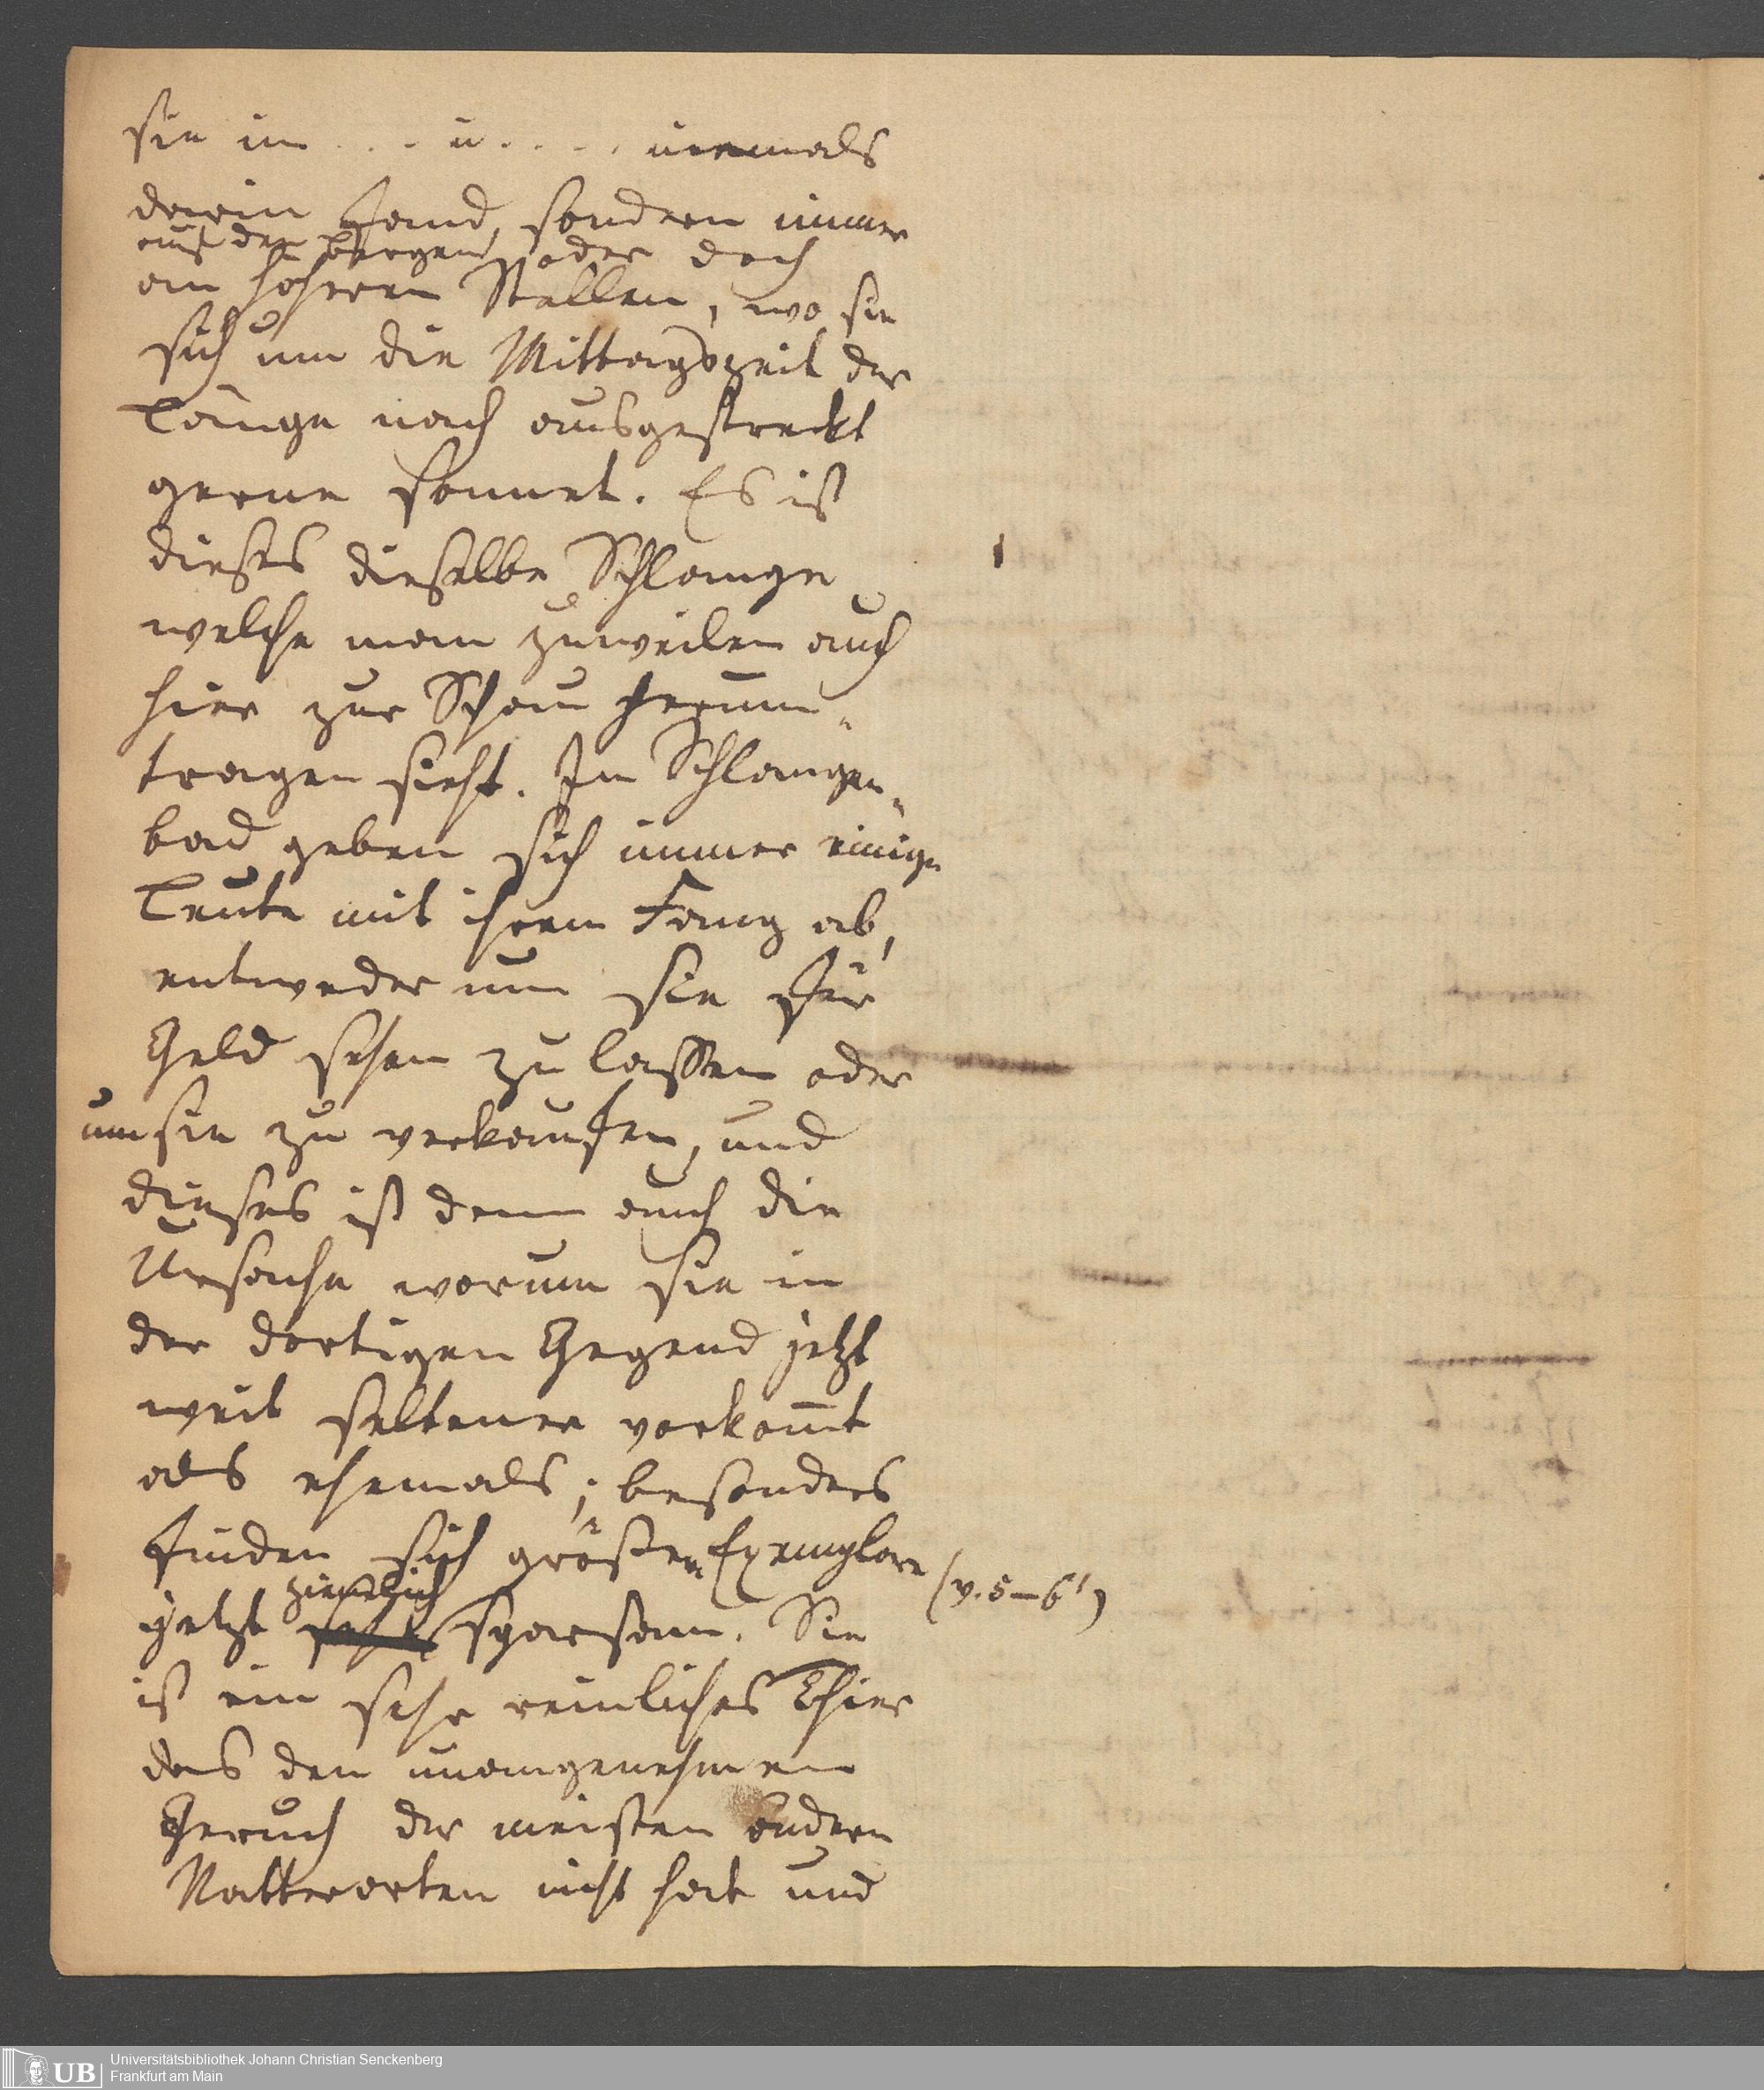 sie im . . . u. . . . . niemals
darin fand, sondern immer
auf den Bergen oder doch
an höheren Stellen, wo sie
sich um die Mittagszeit der
Länge nach ausgestreckt
gerne sonnet. Es ist
dieses dieselbe Schlange
welche man zuweilen auch
hier zur Schau herum-
tragen sieht. In Schlangen-
bad geben sich immer einige
Leute mit ihrem Fang ab,
entweder um sie für
Geld sehen zu lassen oder
um sie zu verkaufen, und
dieses ist denn auch die
Ursache warum sie in
der dortigen Gegend jetzt
weit seltener vorkom̅t
als ehemals; besonders
finden sich größere Exemplare (v. 5–6')
ziemlich
jetzt sparsam. Sie
ist ein sehr reinliches Thier
das den unangenehmen
Geruch der meisten andern
Natterarten nicht hat und
Universitätsbibliothek Johann Christian Senckenberg
Frankfurt am Main
UB